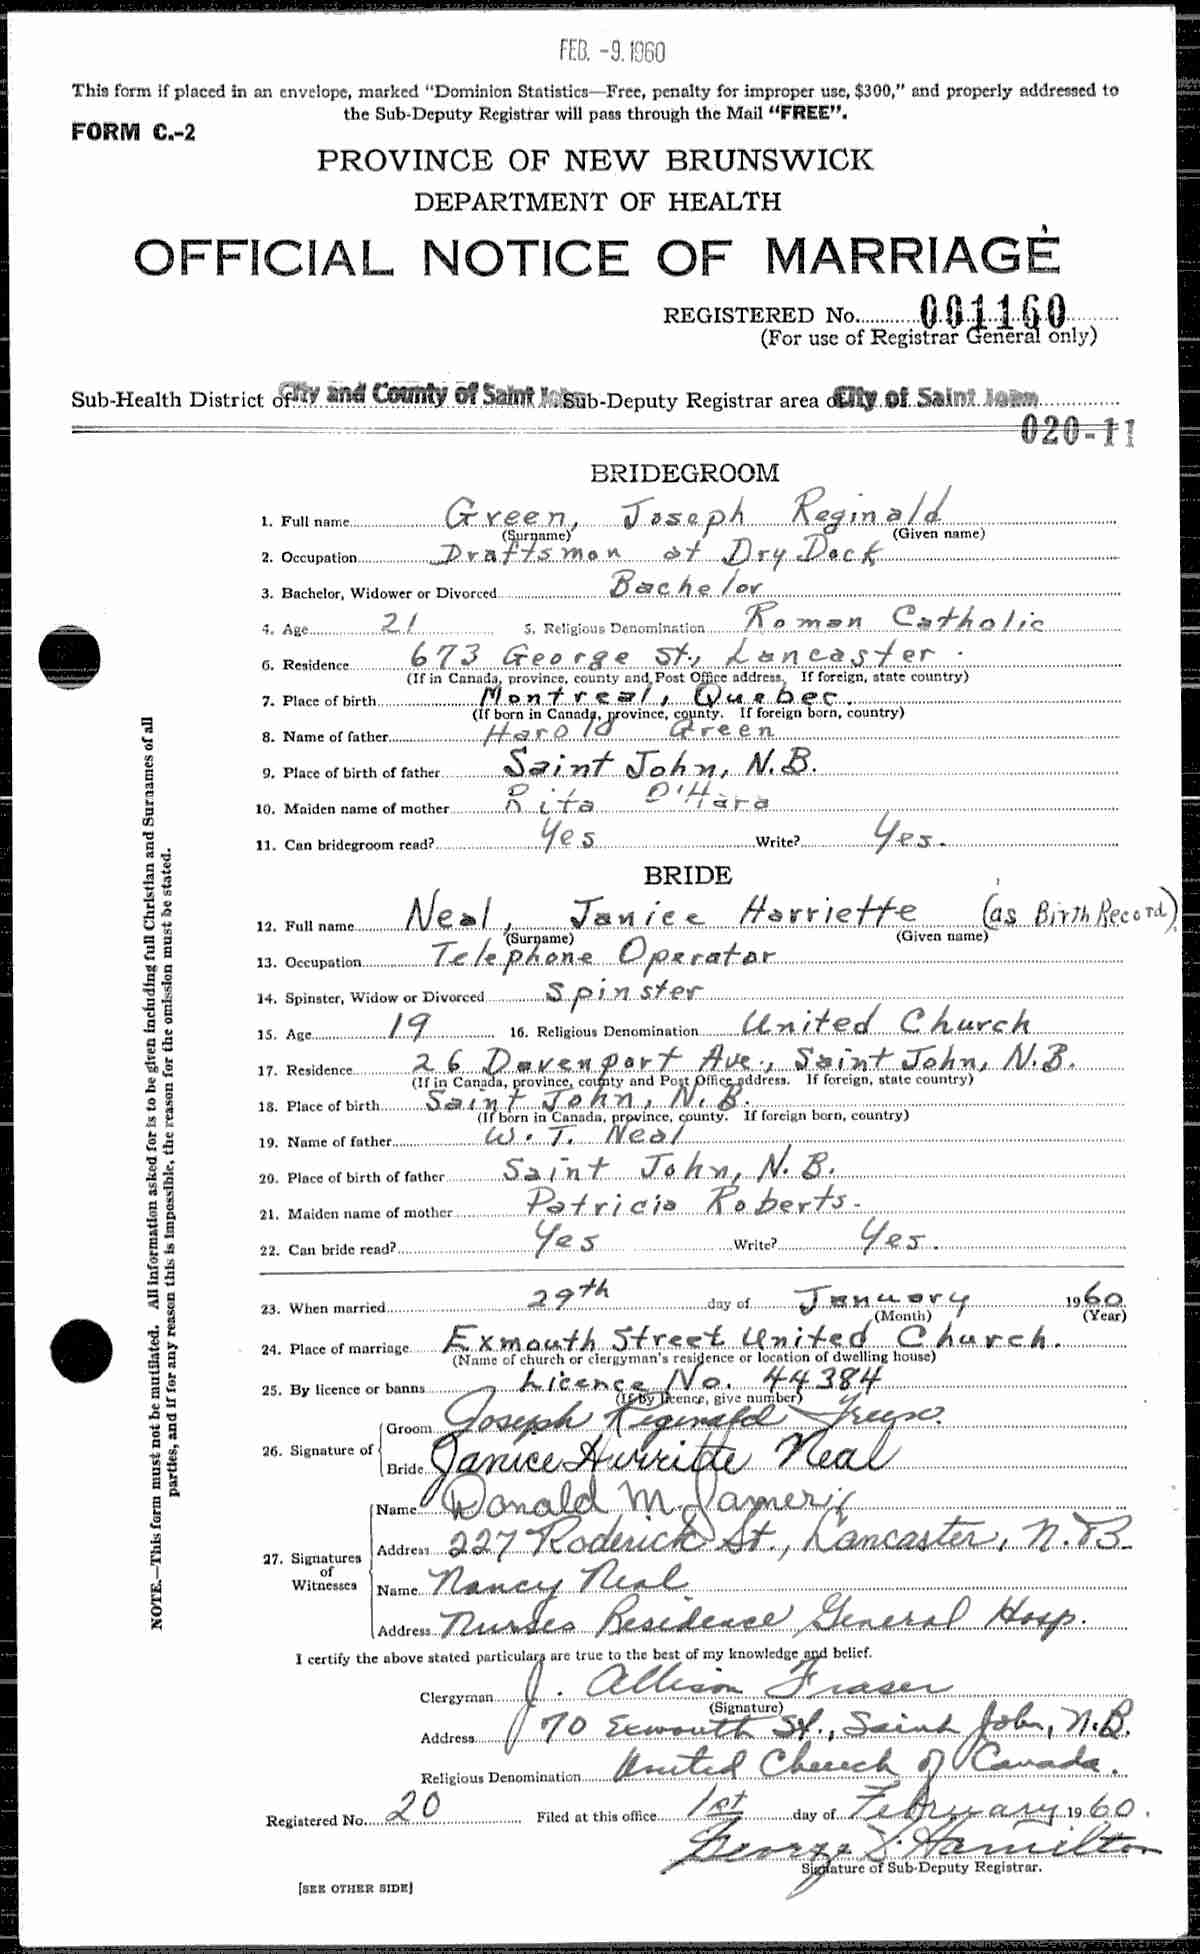 FEB. -9.1960
This form if placed in an envelope, marked “Dominion Statistics—Free, penalty for improper use, $300,” and properly addressed to
the Sub-Deputy Registrar will pass through the Mail “FREE”.
FORM C.-2
PROVINCE OF NEW BRUNSWICK
DEPARTMENT OF HEALTH
OFFICIAL NOTICE OF MARRIAGE
REGISTERED No. 001160
(For use of Registrar General only)
Sub-Health District of City and County of Saint John Sub-Deputy Registrar area of City of Saint John
020-11
BRIDEGROOM
1. Full name Green, Joseph Reginald
(Surname) (Given name)
2. Occupation Draftsman at Dry Dock
3. Bachelor, Widower or Divorced Bachelor
4. Age 21 5. Religious Denomination Roman Catholic
6. Residence 673 George St., Lancaster.
(If in Canada, province, county and Post Office address. If foreign, state country)
7. Place of birth Montreal, Quebec.
(If born in Canada, province, county. If foreign born, country)
8. Name of father Harold Green
9. Place of birth of father Saint John, N.B.
10. Maiden name of mother Rita O'Hara
11. Can bridegroom read? Yes Write? Yes.
BRIDE
12. Full name Neal, Janice Harriette (as Birth Record)
(Surname) (Given name)
13. Occupation Telephone Operator
14. Spinster, Widow or Divorced Spinster
15. Age 19 16. Religious Denomination United Church
17. Residence 26 Davenport Ave., Saint John, N.B.
(If in Canada, province, county and Post Office address. If foreign, state country)
18. Place of birth Saint John, N.B.
(If born in Canada, province, county. If foreign born, country)
19. Name of father W. T. Neal
20. Place of birth of father Saint John, N.B.
21. Maiden name of mother Patricia Roberts.
22. Can bride read? Yes Write? Yes.
23. When married 29th day of January 1960
(Month) (Year)
24. Place of marriage Exmouth Street United Church.
(Name of church or clergyman's residence or location of dwelling house)
25. By licence or banns Licence No. 44384
(If by licence, give number)
26. Signature of Groom Joseph Reginald Green.
Bride Janice Harriette Neal
27. Signatures of Witnesses
Name Donald M.
Address 227 Roderick St., Lancaster, N.B.
Name Nancy Neal
Address Nurses Residence General Hosp.
I certify the above stated particulars are true to the best of my knowledge and belief.
Clergyman J. Allison Fraser
(Signature)
Address 70 Exmouth St., Saint John, N.B.
Religious Denomination United Church of Canada.
Registered No. 20 Filed at this office 1st day of February 1960.
George S. Hamilton
Signature of Sub-Deputy Registrar.
[SEE OTHER SIDE]
NOTE.—This form must not be mutilated. All information asked for is to be given including full Christian and Surnames of all
parties, and if for any reason this is impossible, the reason for the omission must be stated.